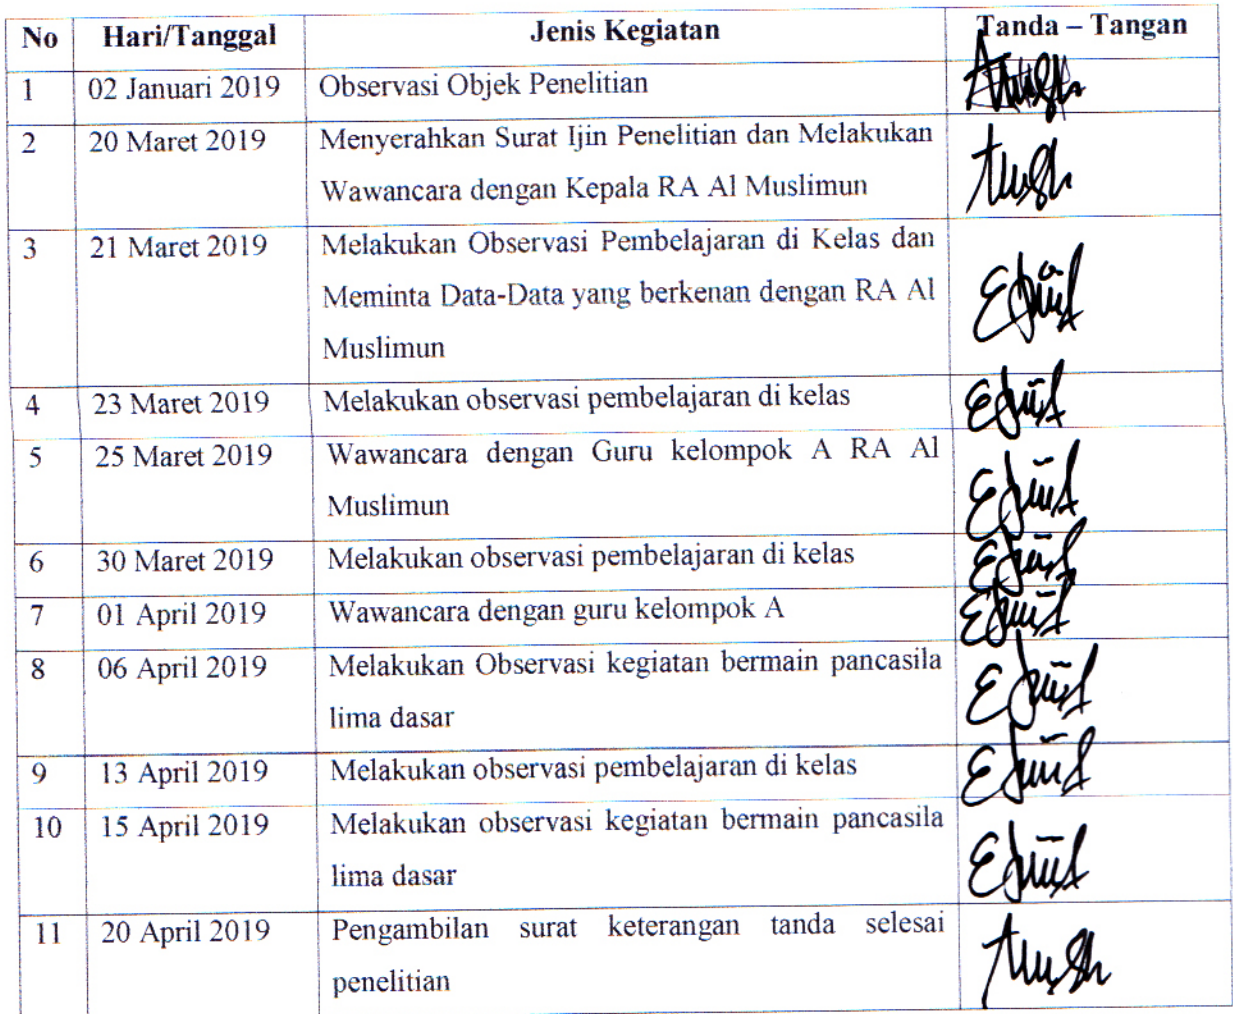 No Hari/Tanggal Jenis Kegiatan Tanda – Tangan
1 02 Januari 2019 Observasi Objek Penelitian
2 20 Maret 2019 Menyerahkan Surat Ijin Penelitian dan Melakukan
Wawancara dengan Kepala RA Al Muslimun
3 21 Maret 2019 Melakukan Observasi Pembelajaran di Kelas dan
Meminta Data-Data yang berkenan dengan RA Al
Muslimun
4 23 Maret 2019 Melakukan observasi pembelajaran di kelas
5 25 Maret 2019 Wawancara dengan Guru kelompok A RA Al
Muslimun
6 30 Maret 2019 Melakukan observasi pembelajaran di kelas
7 01 April 2019 Wawancara dengan guru kelompok A
8 06 April 2019 Melakukan Observasi kegiatan bermain pancasila
lima dasar
9 13 April 2019 Melakukan observasi pembelajaran di kelas
10 15 April 2019 Melakukan observasi kegiatan bermain pancasila
lima dasar
11 20 April 2019 Pengambilan surat keterangan tanda selesai
penelitian